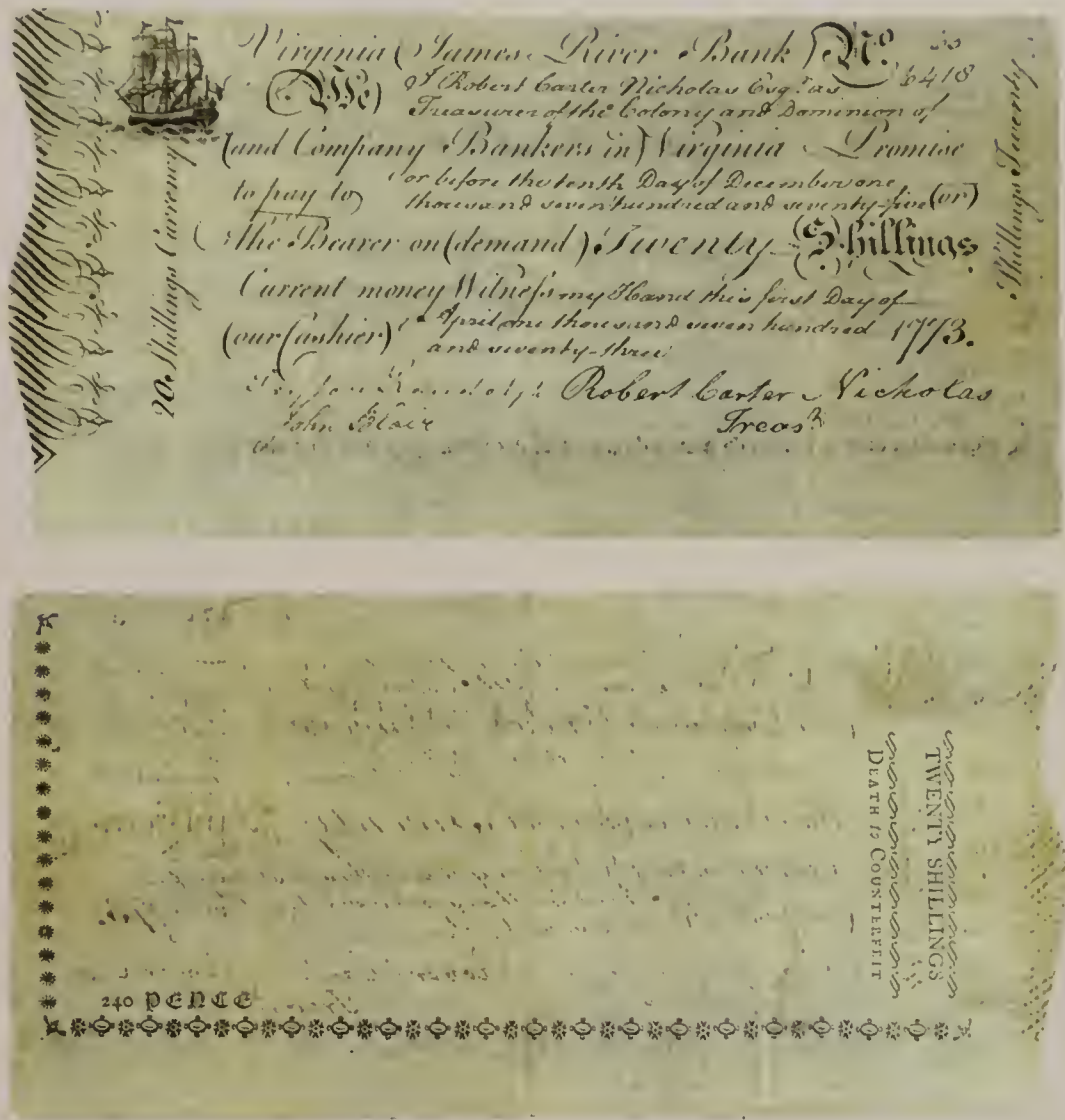 Virginia (James River Bank) No. 
6418
(We) I Robert Carter Nicholas Esqr. as
Treasurer of the Colony and Dominion of
(and Company Bankers in) Virginia Promise
to pay to) or before the tenth Day of December one
thousand seven hundred and seventy-five (or)
(the Bearer on (demand) Twenty Shillings
Current money Witness my Hand this first Day of
(our Cashier) April one thousand seven hundred 1773.
and seventy-three
Robert Carter Nicholas
John Blair Treasr
20 Shillings Currency
Shillings Twenty
TWENTY SHILLINGS
DEATH to COUNTERFEIT
240 PENCE